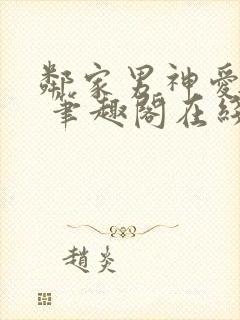 鄰家男神愛
筆趣閣在線
趙炎